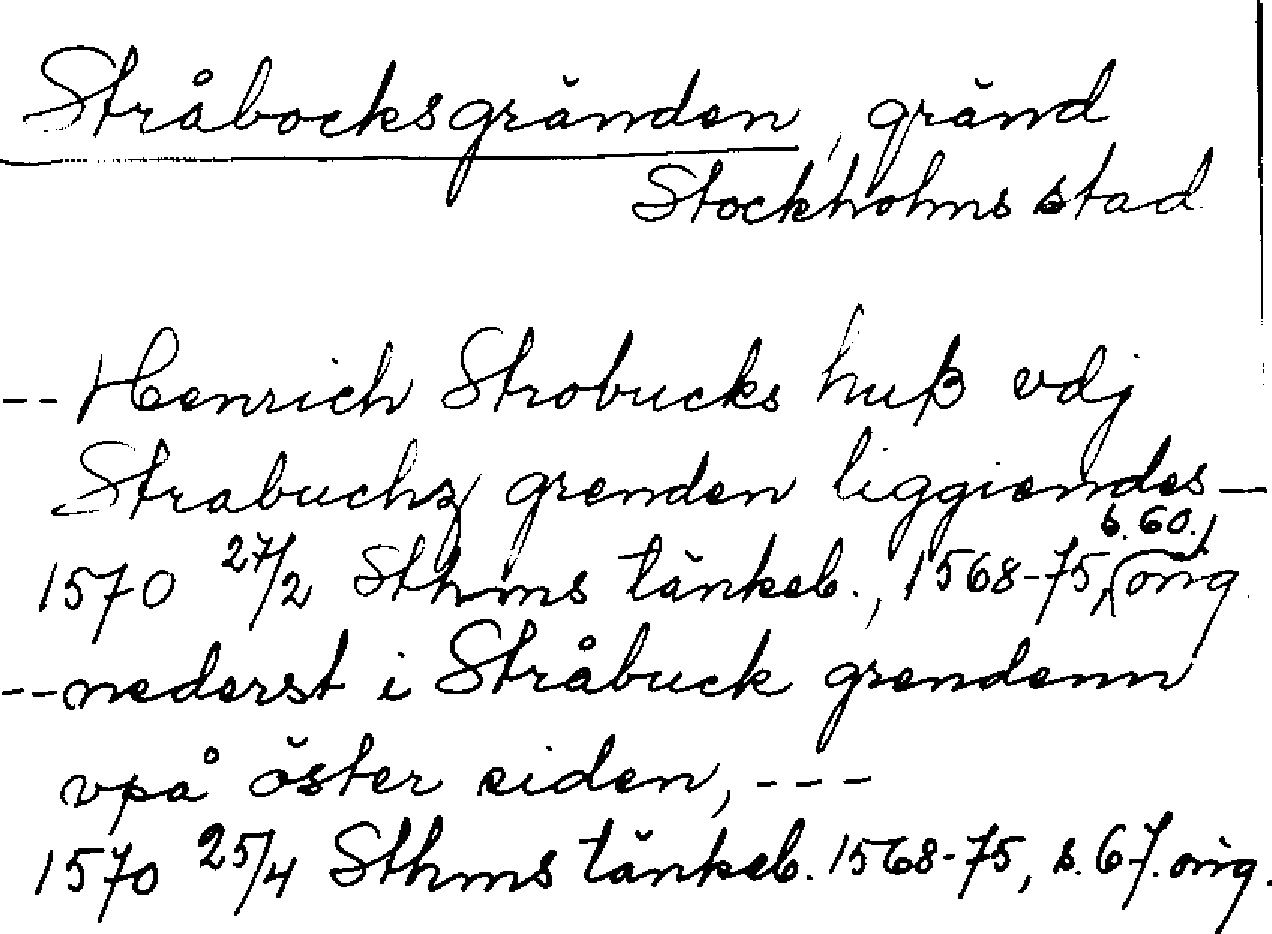 Stråbocksgränden, gränd
Stockholms stad
-- Henrich Strobucks huß vdj
Strabuchz grenden liggiendes -
1570 27/2 Sthms tänkeb., 1568-75, s. 60. (orig.)
-- nederst i Stråbuck grendenn
vpå öster siden, ---
1570 25/4 Sthms tänkeb. 1568-75, s. 67. orig.